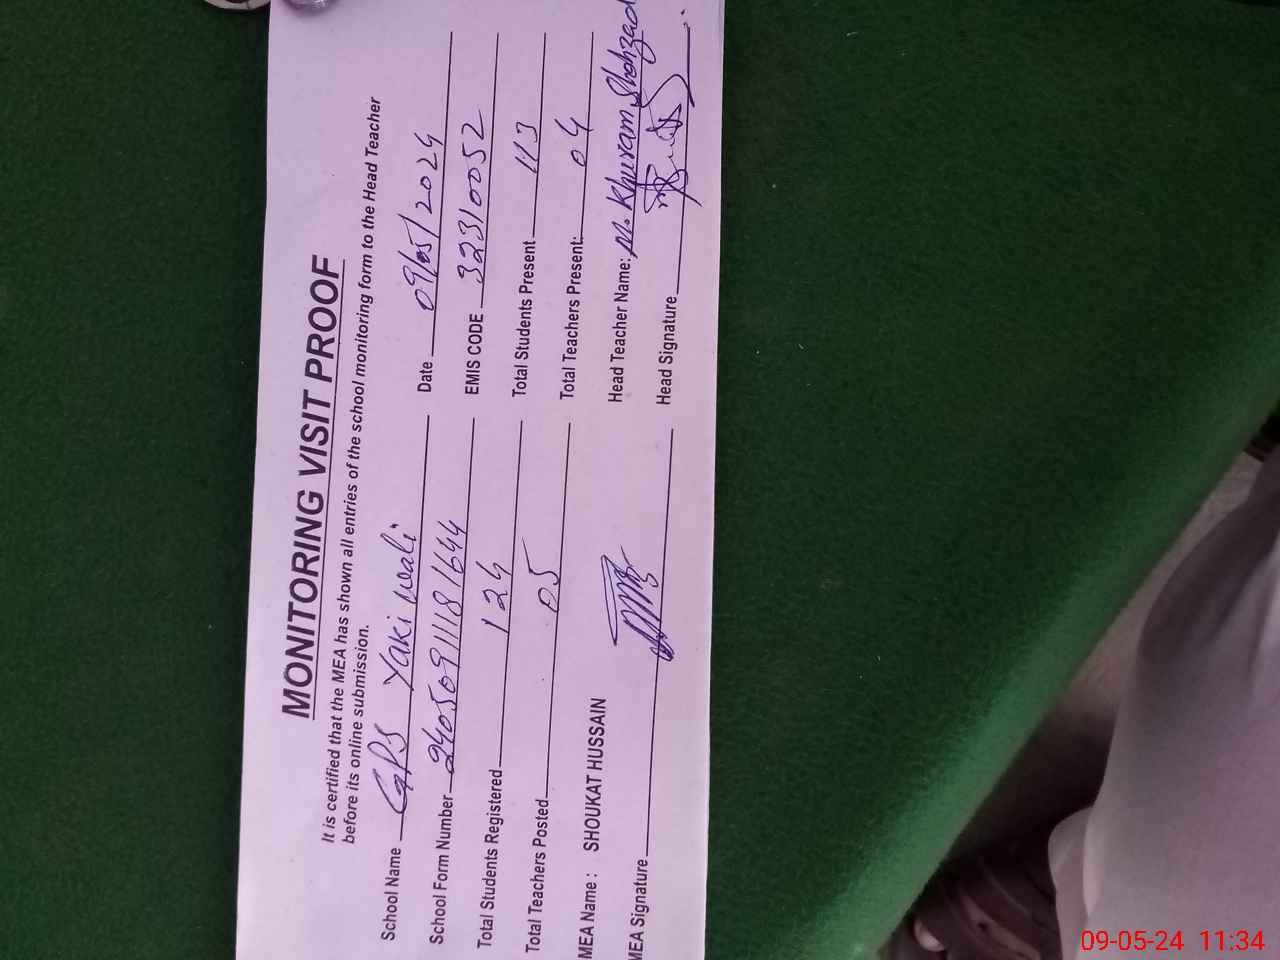 MONITORING VISIT PROOF
It is certified that the MEA has shown all entries of the school monitoring form to the Head Teacher
before its online submission.
School Name GPS Yaki wali Date 09/05/2024
School Form Number 240509111181644 EMIS CODE 32310052
Total Students Registered 124 Total Students Present 113
Total Teachers Posted 05 Total Teachers Present: 04
MEA Name : SHOUKAT HUSSAIN Head Teacher Name: M. Khuram Shahzad
MEA Signature Head Signature
09-05-24 11:34